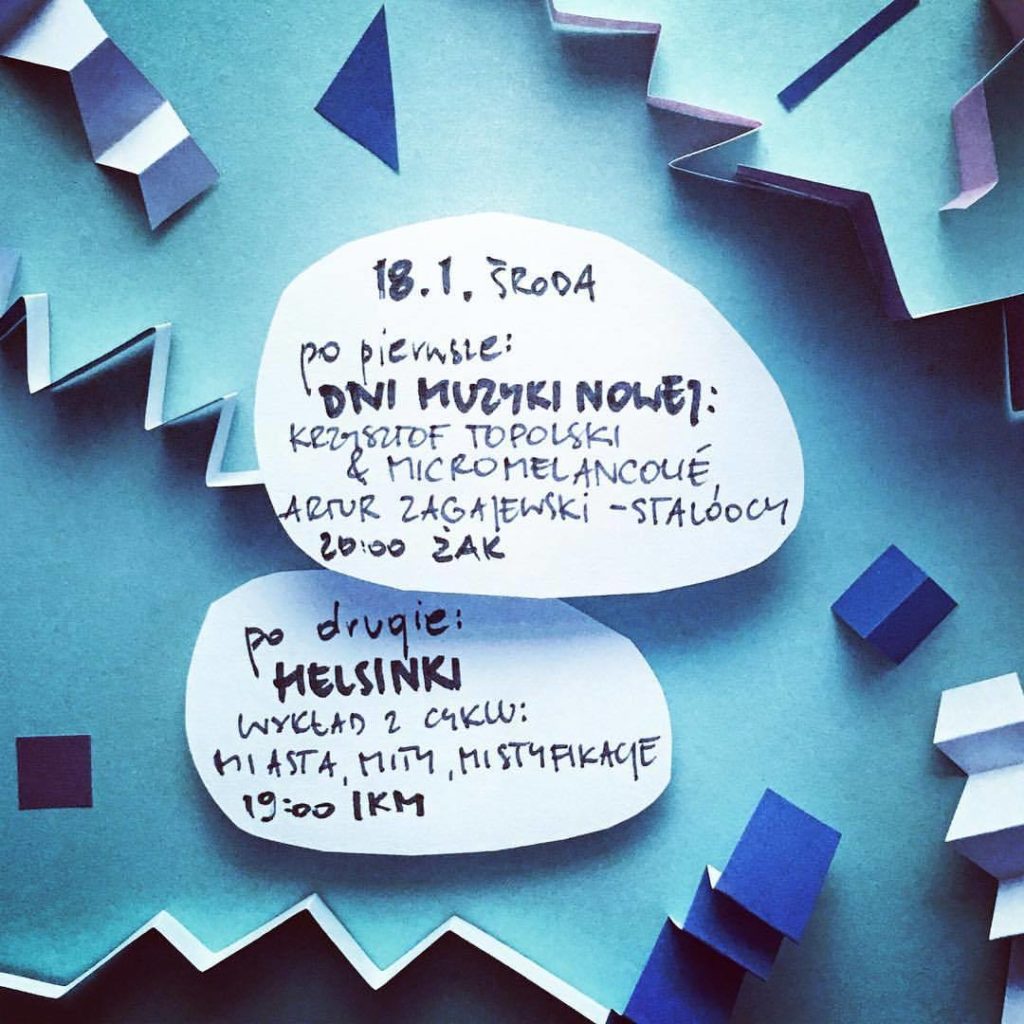 18.1. ŚRODA
po pierwsze:
DNI MUZYKI NOWEJ:
KRZYSZTOF TOPOLSKI
& MICROMELANCOLIÉ,
ARTUR ZAGAJEWSKI - STALÓOCY
20:00 ŻAK
po drugie:
HELSINKI
WYKŁAD Z CYKLU:
MIASTA, MITY, MISTYFIKACJE
19:00 IKM